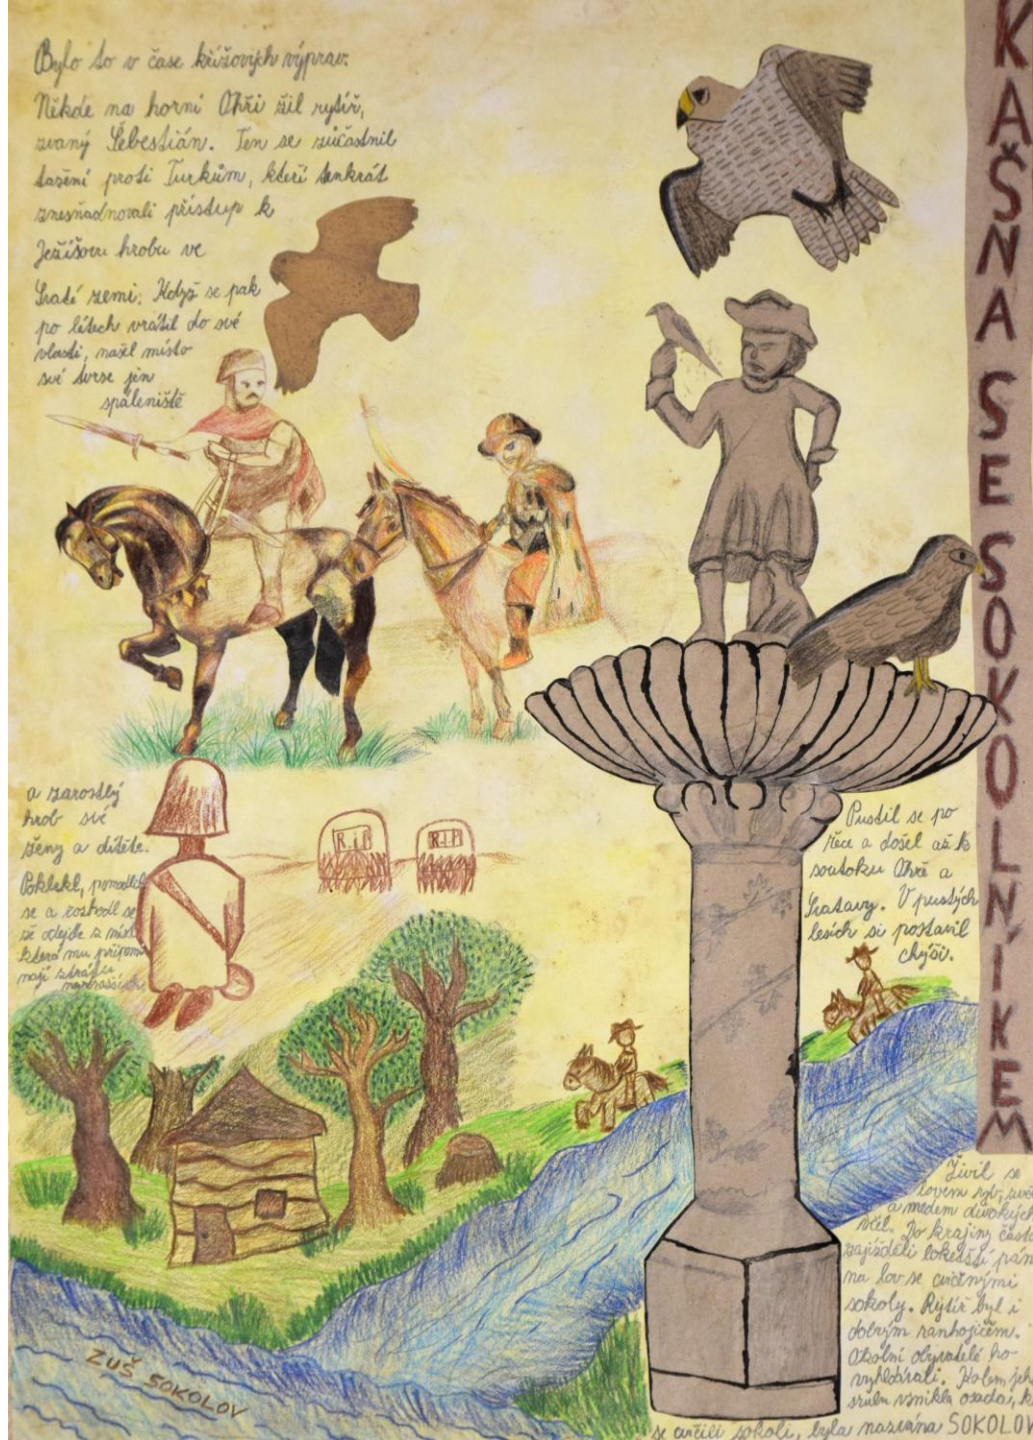 Bylo to v čase křížových výprav.
Někde na horní Ohři žil rytíř,
zvaný Šebestián. Ten se zúčastnil
tažení proti Turkům, kteří tenkrát
znesňadnovali přístup k
Ježíšovu hrobu ve
Svaté zemi. Když se pak
po létech vrátil do své
vlasti, našel místo
své tvrze jen
spáleniště
a zarostlý
hrob své
ženy a dítěte.
Poklekl, pomodlil
se a rozhodl se
že odejde z míst
která mu připom
nají ztrátu
R.I.P
R.I.P
Pustil se po
řece a došel až k
soutoku Ohře a
Svatavy. V pustých
lesích si postavil
chýši.
Živil se
lovem ryb,
a medem divokých
včel. Do krajiny často
zajížděli loketští páni
na lov se cvičenými
sokoly. Rytíř byl i
dobrým ranhojičem.
Okolní obyvatelé ho
vyhledávali. Kolem jeh
srubu vznikla osada, k
se cvičili sokoli, byla nazvána SOKOLOV
KAŠNA SE SOKOLNÍKEM
ZUŠ SOKOLOV